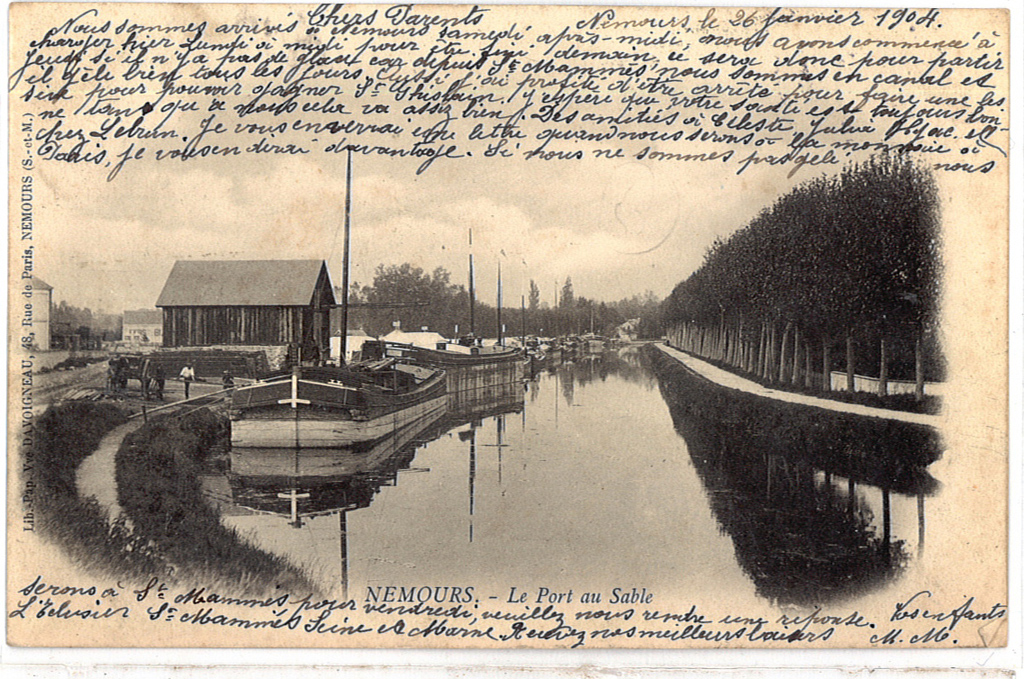 Chers Parents
Nemours, le 26 Janvier 1904.
Nous sommes arrivés à Nemours samedi, après-midi, nous avons commencé à
charger hier Lundi à midi pour être fini demain, ce sera donc pour partir
jeudi si il n'y a pas de glace car depuis St Mammès, nous sommes en canal et
il gèle bien tous les jours, aussi j'ai profité d'être arrêté pour faire une les
sive pour pouvoir gagner St Ghislain. J'espère que votre santé est toujours bon-
ne tant qu'à nous cela va assez bien. Des amitiés à Céleste, Julia
chez Lebrun. Je vous enverrai une lettre quand nous serons à la monnaie à
Paris, je vous en dirai davantage. Si nous ne sommes pas gelé, nous
Lib.-Pap. Vve DAVOIGNEAU, 48, Rue de Paris, NEMOURS (S.-et-M.)
NEMOURS. - Le Port au Sable
serons à St Mammès pour vendredi, veuillez nous rendre une réponse. Vos enfants
L'Eclusier St Mammès Seine et Marne. Recevez nos meilleurs baisers M. M.